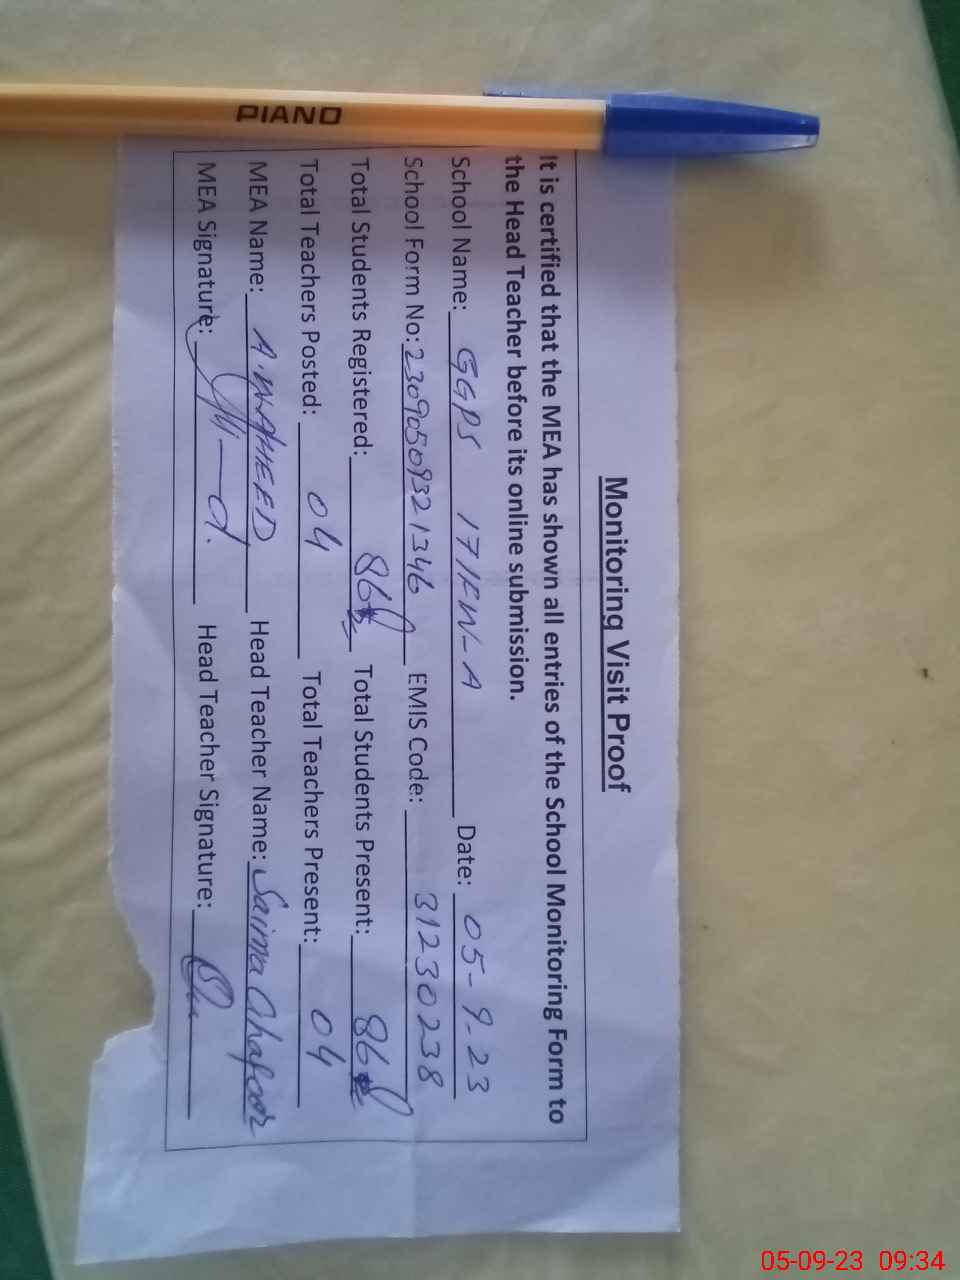 PIANO
Monitoring Visit Proof
It is certified that the MEA has shown all entries of the School Monitoring Form to
the Head Teacher before its online submission.
School Name: GGPS 171RW-A Date: 05-9-23
School Form No: 23090509321346 EMIS Code: 31230238
Total Students Registered: 86 Total Students Present: 86
Total Teachers Posted: 04 Total Teachers Present: 04
MEA Name: A. WAHEED Head Teacher Name: Saima Ghafoor
MEA Signature: Head Teacher Signature:
05-09-23 09:34